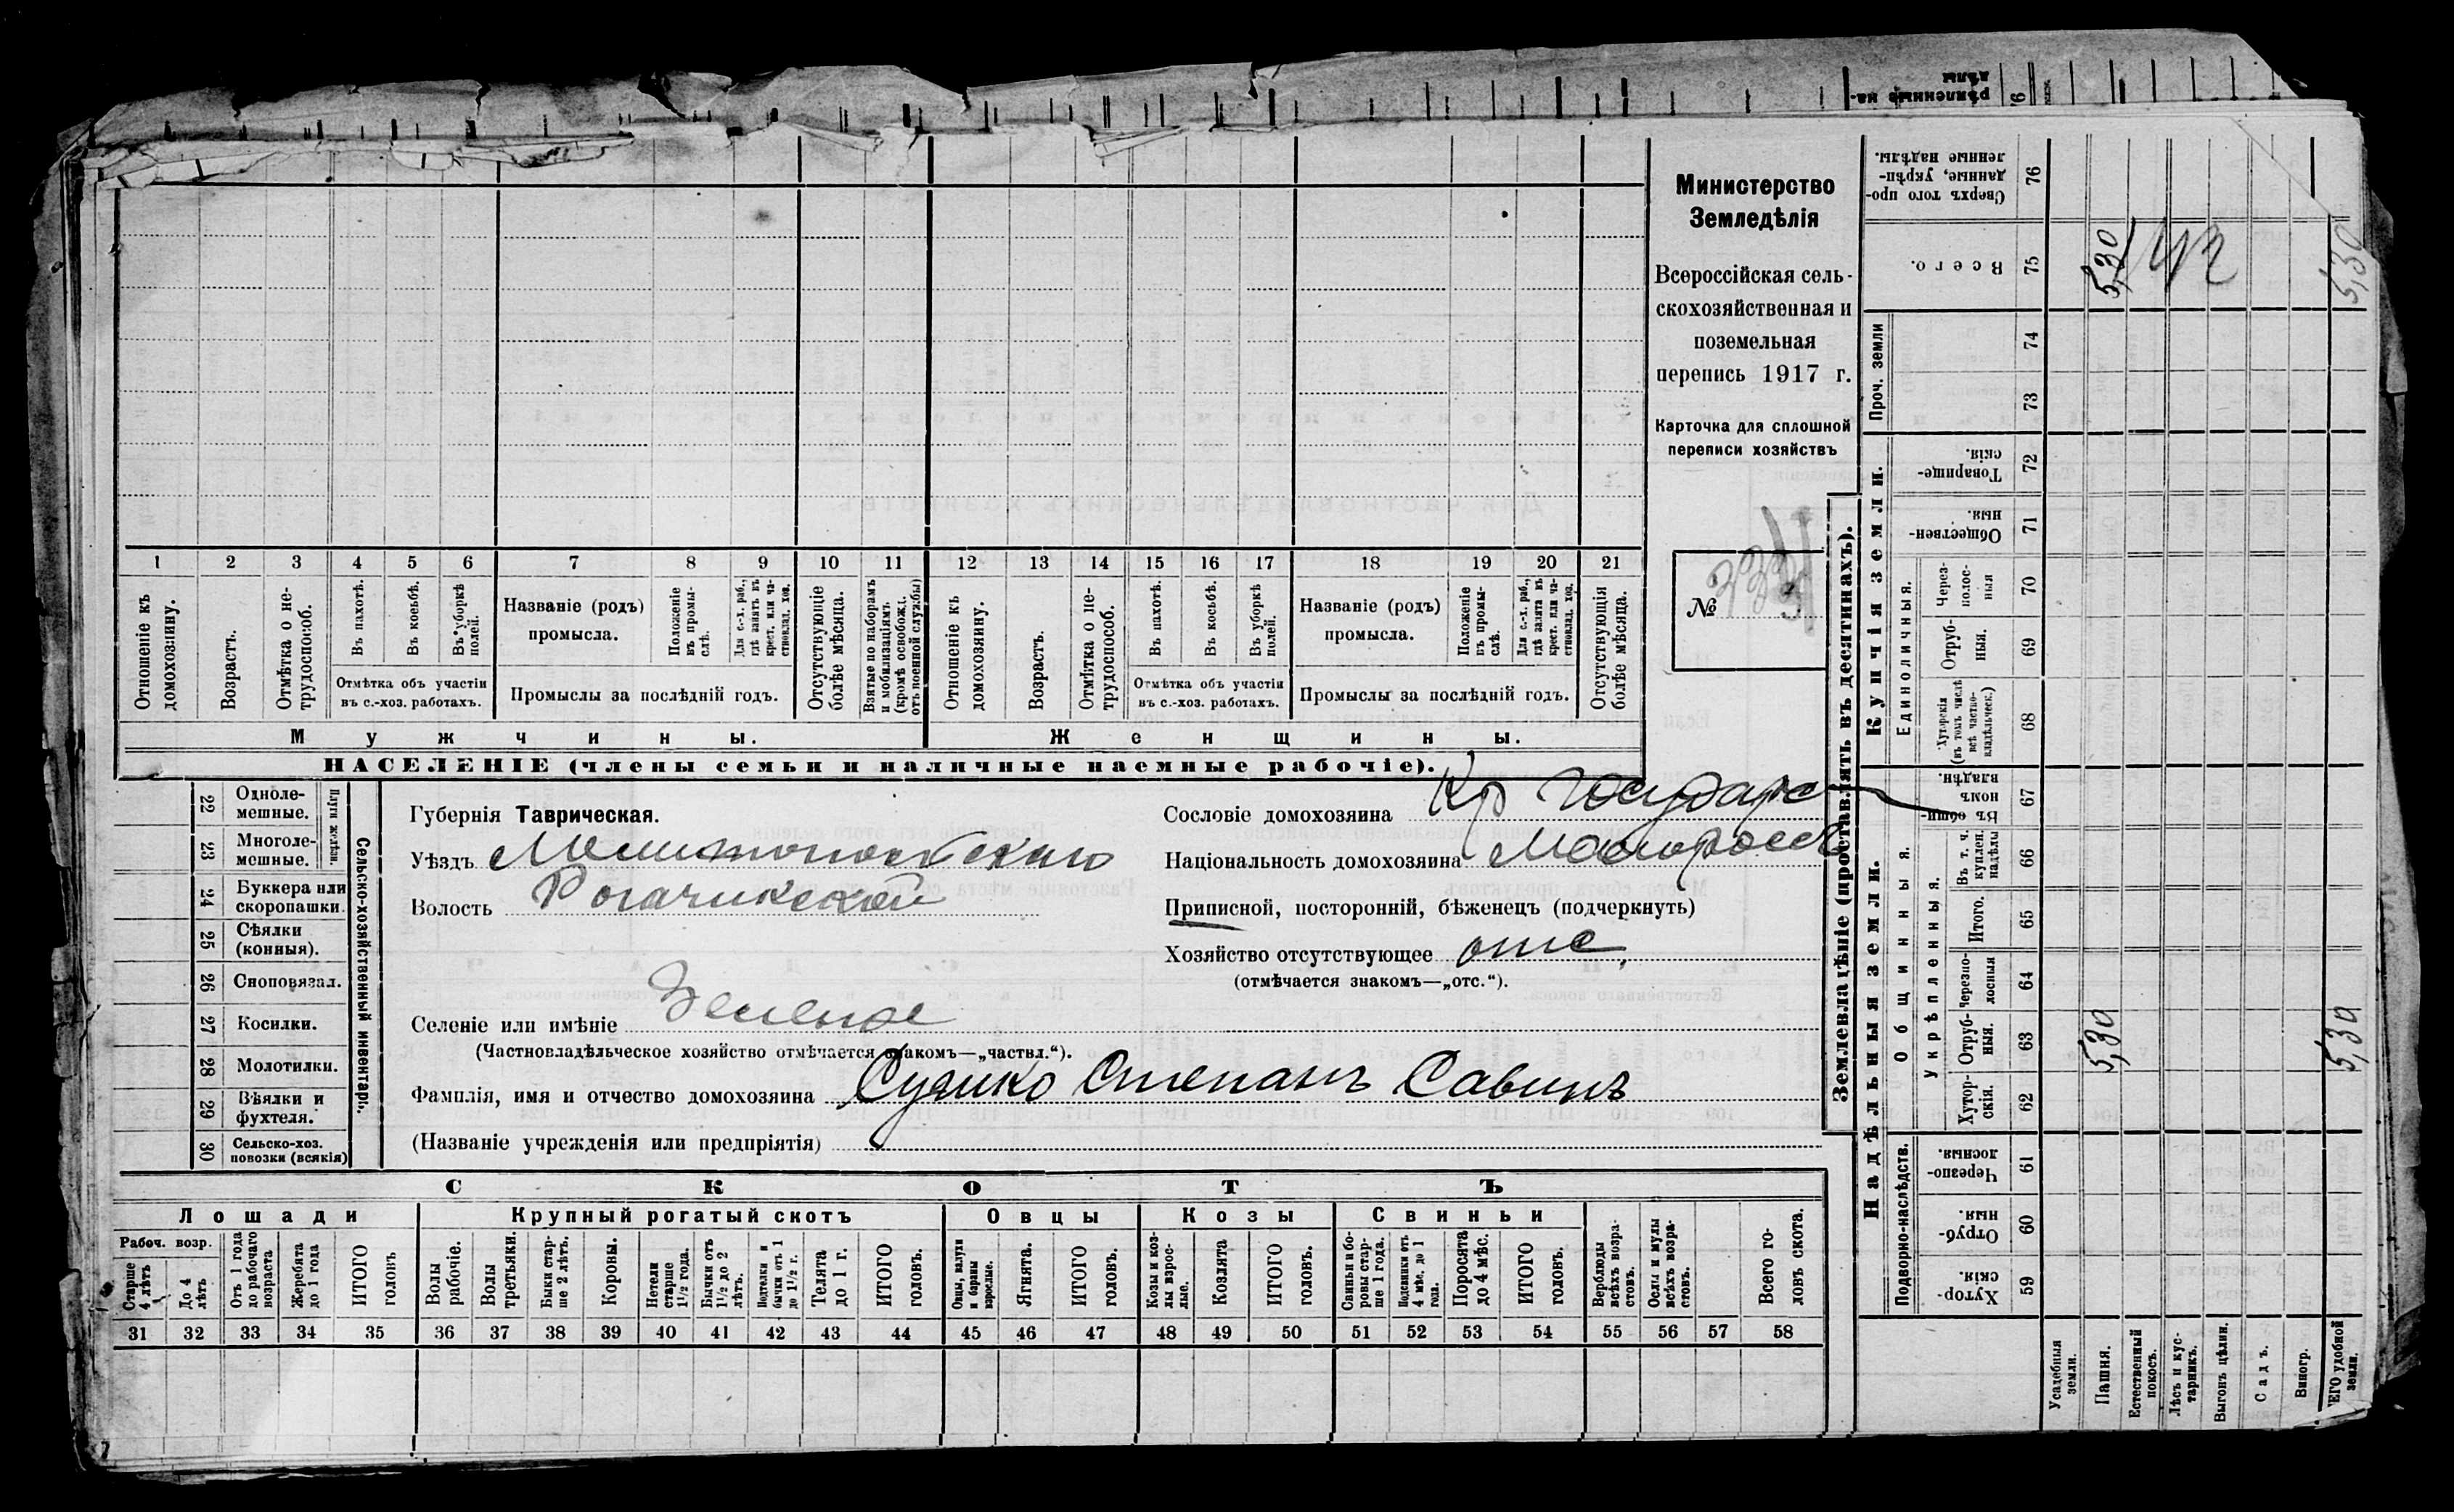 рѣпленные на-
дѣлы
6
Министерство
Земледѣлія
Всероссійская сель-
скохозяйственная и
поземельная
перепись 1917 г.
Карточка для сплошной
переписи хозяйствъ
№
1 2 3 4 5 6 7 8 9 10 11 12 13 14 15 16 17 18 19 20 21
Отношеніе къ домохозяину.
Возрастъ.
Отмѣтка о не-трудоспособ.
Въ пахотѣ.
Въ косьбѣ.
Въ уборкѣ полей.
Отмѣтка объ участіи
въ с.-хоз. работахъ.
Названіе (родъ)
промысла.
Положеніе въ промы-слѣ.
Для с.-х. раб., гдѣ занятъ въ крест. или ча-стновлад. хоз.
Промыслы за послѣдній годъ.
Отсутствующіе болѣе мѣсяца.
Взятые по наборамъ и мобилизаціямъ (кромѣ освобожд. отъ военной службы)
Отношеніе къ домохозяину.
Возрастъ.
Отмѣтка о не-трудоспособ.
Въ пахотѣ.
Въ косьбѣ.
Въ уборкѣ полей.
Отмѣтка объ участіи
въ с.-хоз. работахъ.
Названіе (родъ)
промысла.
Положеніе въ промы-слѣ.
Для с.-х. раб., гдѣ занятъ въ крест. или ча-стновлад. хоз.
Промыслы за послѣдній годъ.
Отсутствующія болѣе мѣсяца.
Мужчины.
Женщины.
НАСЕЛЕНІЕ (члены семьи и наличные наемные рабочіе).
22 Одноле-мешные.
23 Многоле-мешные.
Плуги желѣзн.
24 Буккера или скоропашки.
25 Сѣялки (конныя).
26 Сноповязал.
27 Косилки.
28 Молотилки.
29 Вѣялки и фухтеля.
30 Сельско-хоз. повозки (всякія)
Сельско-хозяйственный инвентарь.
Губернія Таврическая.
Уѣздъ Мелитопольскаго
Волость Рогачикской
Селеніе или имѣніе Зеленое
(Частновладѣльческое хозяйство отмѣчается знакомъ—„частвл.“).
Фамилія, имя и отчество домохозяина Судико Степанъ Савинъ
(Названіе учрежденія или предпріятія)
Сословіе домохозяина Кр Государс
Національность домохозяина Малоросс
Приписной, посторонній, бѣженецъ (подчеркнуть)
Хозяйство отсутствующее отс.
(отмѣчается знакомъ—„отс.“).
СКОТЪ
Лошади
Крупный рогатый скотъ
Овцы
Козы
Свиньи
Рабоч. возр.
Старше 4 лѣтъ
До 4 лѣтъ
Отъ 1 года до рабочаго возраста
Жеребята до 1 года
ИТОГО головъ
Волы рабочіе.
Волы третьяки.
Быки стар-ше 2 лѣтъ.
Коровы.
Нетели старше 1½ года.
Бычки отъ 1½ до 2 лѣтъ.
Подтелки и бычки отъ 1 до 1½ г.
Телята до 1 г.
ИТОГО головъ.
Овцы, валухи и бараны взрослые.
Ягнята.
ИТОГО головъ.
Козы и коз-лы взрос-лые.
Козлята
ИТОГО головъ.
Свиньи и бо-ровы стар-ше 1 года.
Подсвинки отъ 4 мѣс. до 1 года.
Поросята до 4 мѣс.
ИТОГО головъ.
Верблюды всѣхъ возра-стовъ.
Ослы и мулы всѣхъ возра-стовъ.
Всего го-ловъ скота.
31 32 33 34 35 36 37 38 39 40 41 42 43 44 45 46 47 48 49 50 51 52 53 54 55 56 57 58
Землевладѣніе (проставлять въ десятинахъ).
Купчія земли.
Надѣльныя земли.
Проч. земли
Единоличныя.
Общинныя.
Укрѣпленныя.
Подворно-наслѣдств.
Сверхъ того про-данные, укрѣп-ленные надѣлы. 76
Всего. 75
5,30
42
5,30
74
73
Товарище-скія. 72
Обществен-ныя. 71
Через-полос-ныя 70
Отруб-ныя. 69
Хуторскія (въ томъ числѣ всѣ частно-владѣльческ.) 68
Въ общин-номъ владѣн. 67
Въ т. ч. куплен. надѣлы 66
Итого. 65
Черезпо-лосныя 64
Отруб-ныя. 63
5,30
5,30
Хутор-скія. 62
Черезпо-лосныя. 61
Отруб-ныя. 60
Хутор-скія. 59
Усадебныя земли.
Пашня.
Естественный покосъ.
Лѣсъ и кус-тарникъ.
Выгонъ цѣлин.
Садъ.
Виногр.
ЕГО удобной земли.